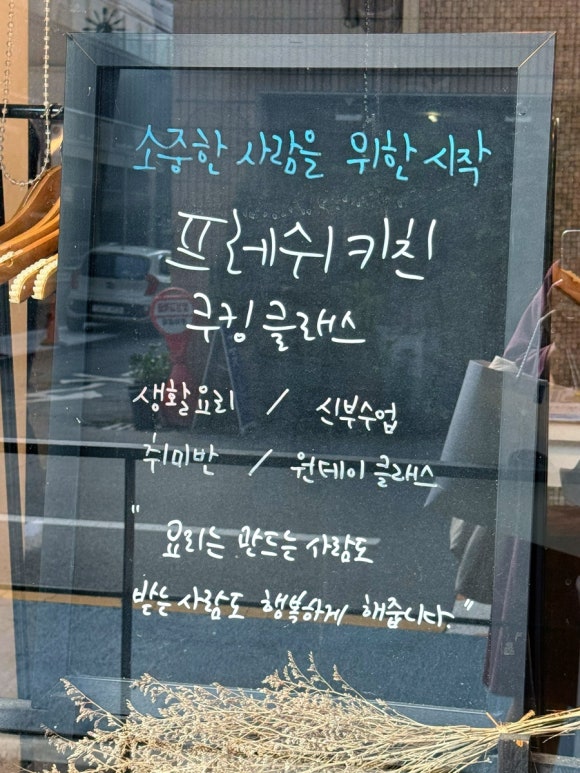 소중한 사람을 위한 시작
프레쉬 키친
쿠킹 클래스
생활요리 / 신부수업
취미반 / 원데이 클래스
" 요리는 만드는 사람도
받는 사람도 행복하게 해줍니다. "